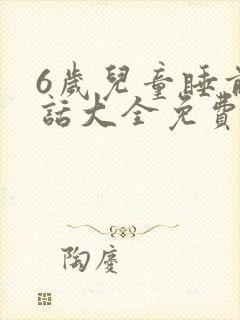 6歲兒童睡前
話大全免費
陶慶